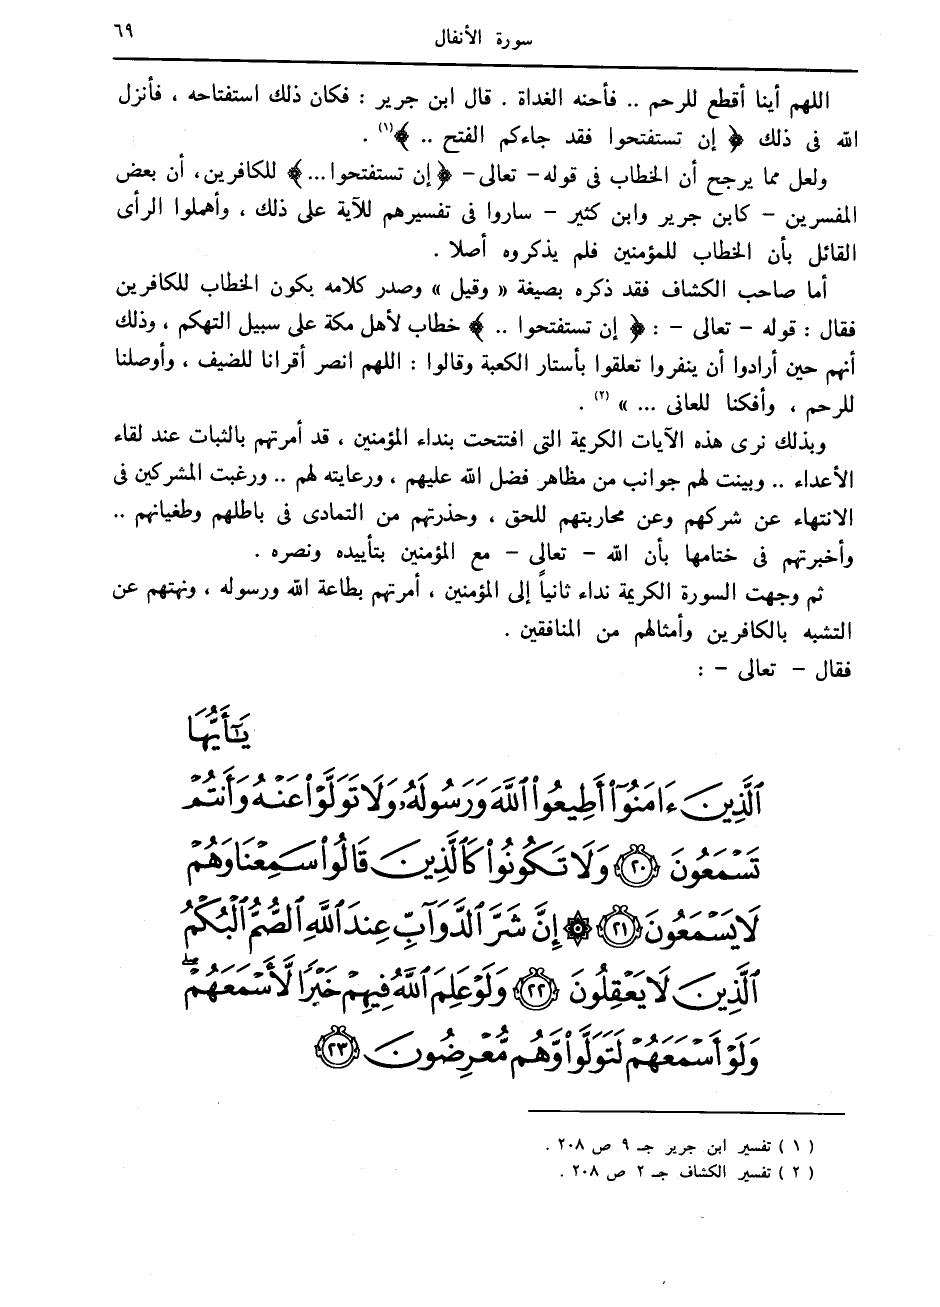 سورة الأنفال
٦٩
اللهم أينا أقطع للرحم .. فأحنه الغداة . قال ابن جرير : فكان ذلك استفتاحه ، فأنزل
الله فى ذلك ﴿ إن تستفتحوا فقد جاءكم الفتح .. ﴾(١) .
ولعل مما يرجح أن الخطاب فى قوله – تعالى – ﴿ إن تستفتحوا ... ﴾ للكافرين ، أن بعض
المفسرين – كابن جرير وابن كثير – ساروا فى تفسيرهم للآية على ذلك ، وأهملوا الرأى
القائل بأن الخطاب للمؤمنين فلم يذكروه أصلا .
أما صاحب الكشاف فقد ذكره بصيغة « وقيل » وصدر كلامه بكون الخطاب للكافرين
فقال : قوله – تعالى – : ﴿ إن تستفتحوا .. ﴾ خطاب لأهل مكة على سبيل التهكم ، وذلك
أنهم حين أرادوا أن ينفروا تعلقوا بأستار الكعبة وقالوا : اللهم انصر أقرانا للضيف ، وأوصلنا
للرحم ، وأفكنا للعانى ... » (٢) .
وبذلك نرى هذه الآيات الكريمة التى افتتحت بنداء المؤمنين ، قد أمرتهم بالثبات عند لقاء
الأعداء .. وبينت لهم جوانب من مظاهر فضل الله عليهم ، ورعايته لهم .. ورغبت المشركين فى
الانتهاء عن شركهم وعن محاربتهم للحق ، وحذرتهم من التمادى فى باطلهم وطغيانهم ..
وأخبرتهم فى ختامها بأن الله – تعالى – مع المؤمنين بتأييده ونصره .
ثم وجهت السورة الكريمة نداء ثانياً إلى المؤمنين ، أمرتهم بطاعة الله ورسوله ، ونهتهم عن
التشبه بالكافرين وأمثالهم من المنافقين .
فقال – تعالى – :
يَٰٓأَيُّهَا
ٱلَّذِينَ ءَامَنُوٓا۟ أَطِيعُوا۟ ٱللَّهَ وَرَسُولَهُۥ وَلَا تَوَلَّوْا۟ عَنْهُ وَأَنتُمْ
تَسْمَعُونَ ٢٠ وَلَا تَكُونُوا۟ كَٱلَّذِينَ قَالُوا۟ سَمِعْنَا وَهُمْ
لَا يَسْمَعُونَ ٢١ ۞ إِنَّ شَرَّ ٱلدَّوَآبِّ عِندَ ٱللَّهِ ٱلصُّمُّ ٱلْبُكْمُ
ٱلَّذِينَ لَا يَعْقِلُونَ ٢٢ وَلَوْ عَلِمَ ٱللَّهُ فِيهِمْ خَيْرًا لَّأَسْمَعَهُمْ ۖ
وَلَوْ أَسْمَعَهُمْ لَتَوَلَّوا۟ وَّهُم مُّعْرِضُونَ ٢٣
( ١ ) تفسير ابن جرير جـ ٩ ص ٢٠٨ .
( ٢ ) تفسير الكشاف جـ ٢ ص ٢٠٨ .